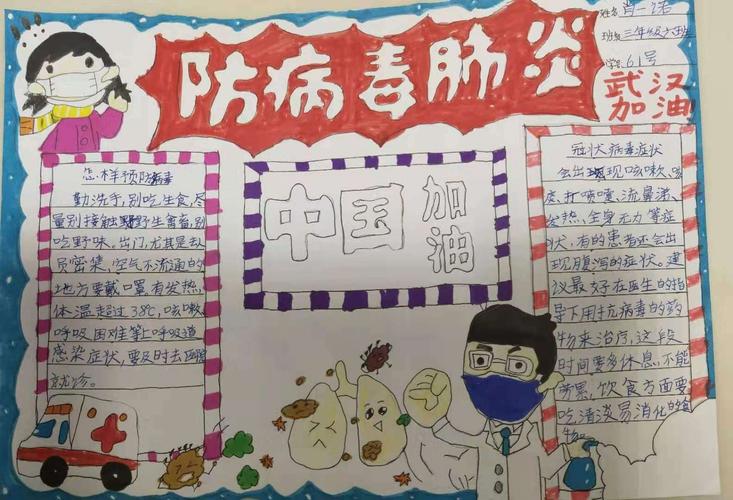 防病毒肺炎
姓名 肖一诺
班级 三年级六班
学号 61号
武汉
加油
怎样预防病毒
勤洗手,别吃生食,尽
量别接触野生禽畜,别
吃野味。出门,尤其是人
员密集,空气不流通的
地方要戴口罩有发热,
体温超过38℃,咳嗽,
呼吸困难等上呼吸道
感染症状,要及时去医院
就诊。
中国
加油
冠状病毒症状
会出现咳嗽,
打喷嚏,流鼻涕,
发热,全身无力等症
状,有的患者还会出
现腹泻的症状。建
议最好在医生的指
导下用抗病毒的药
物来治疗,这段
时间要多休息,不能
劳累,饮食方面要
吃清淡易消化的食
物。